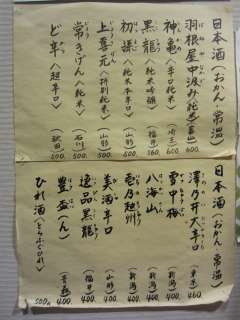 日本酒(おかん・常温)
羽根屋中汲み純吟 富山 600
神亀〈辛口純米〉(埼玉) 600
黒龍〈純米吟醸〉(福井) 560
初孫〈純米本辛口〉(山形) 500
上喜元〈特別純米〉(山形) 500
常きげん〈純米〉(石川) 500
ど辛〈超辛口〉(秋田) 500
日本酒(おかん 常温)
澤乃井大辛口(東京) 460
雪中梅(新潟) 400
八海山(新潟) 400
壱乃越州(新潟) 400
美酒辛口(山形) 400
逸品黒龍(福井) 400
豊盃(ん)(青森) 400
ひれ酒〈とらふぐひれ〉 500円